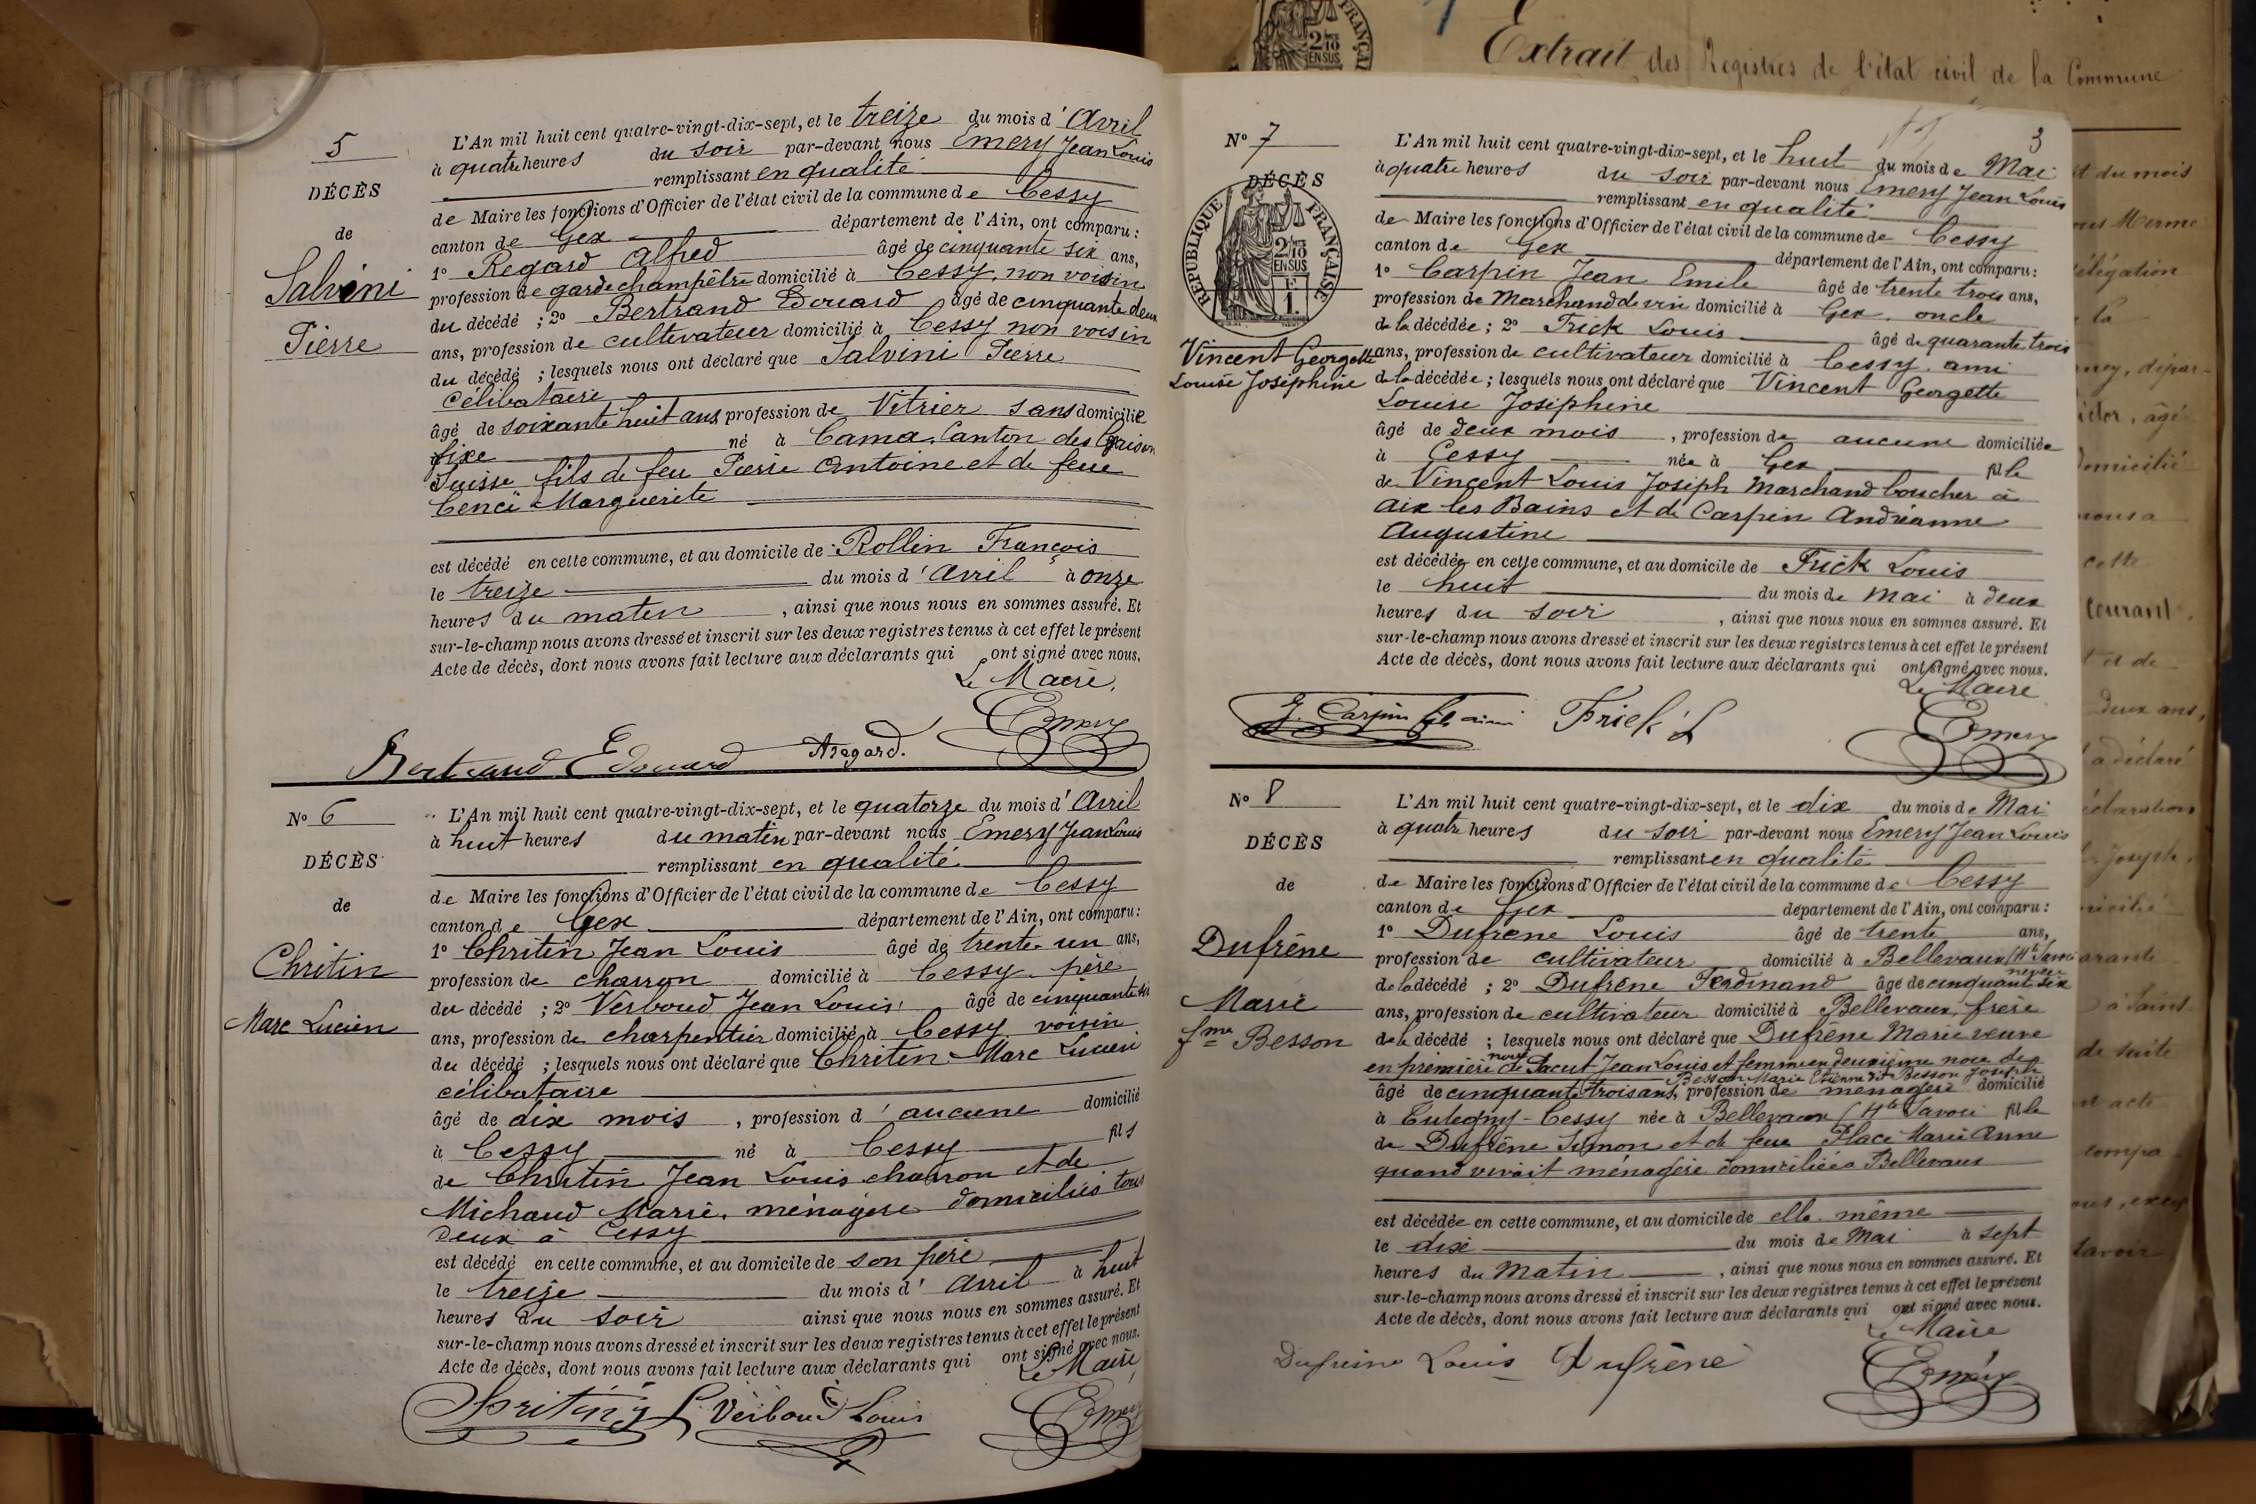 5
DÉCÈS
de
Salvini
Pierre
L'An mil huit cent quatre-vingt-dix-sept, et le treize du mois d'Avril
à quatre heures du soir par-devant nous Emery Jean Louis
remplissant en qualité
de Maire les fonctions d'Officier de l'état civil de la commune de Cessy
canton de Gex département de l'Ain, ont comparu :
1° Regard Alfred âgé de cinquante six ans,
profession de garde champêtre domicilié à Cessy, non voisin
du décédé ; 2° Bertrand Edouard âgé de cinquante deux
ans, profession de cultivateur domicilié à Cessy non voisin
du décédé ; lesquels nous ont déclaré que Salvini Pierre
célibataire
âgé de soixante huit ans, profession de Vitrier sans domicilié
fixe né à Cama, Canton des Grison
Suisse fils de feu Pierre Antoine et de feue
Cenci Marguerite
est décédé en cette commune, et au domicile de Rollin François
le treize du mois d'Avril à onze
heures du matin, ainsi que nous nous en sommes assuré. Et
sur-le-champ nous avons dressé et inscrit sur les deux registres tenus à cet effet le présent
Acte de décès, dont nous avons fait lecture aux déclarants qui ont signé avec nous.
Le Maire,
Bertrand Edouard Aregard. Emery
N° 6
DÉCÈS
de
Chritin
Marc Lucien
L'An mil huit cent quatre-vingt-dix-sept, et le quatorze du mois d'Avril
à huit heures du matin par-devant nous Emery Jean Louis
remplissant en qualité
de Maire les fonctions d'Officier de l'état civil de la commune de Cessy
canton de Gex département de l'Ain, ont comparu :
1° Chritin Jean Louis âgé de trente un ans,
profession de charron domicilié à Cessy père
du décédé ; 2° Verboud Jean Louis âgé de cinquante six
ans, profession de charpentier domicilié à Cessy voisin
du décédé ; lesquels nous ont déclaré que Chritin Marc Lucien
célibataire
âgé de dix mois, profession d'aucune domicilié
à Cessy né à Cessy fils
de Chritin Jean Louis charron et de
Michaud Marie, ménagère domiciliés tous
deux à Cessy
est décédé en cette commune, et au domicile de son père
le treize du mois d'Avril à huit
heures du soir ainsi que nous nous en sommes assuré. Et
sur-le-champ nous avons dressé et inscrit sur les deux registres tenus à cet effet le présent
Acte de décès, dont nous avons fait lecture aux déclarants qui ont signé avec nous.
Le Maire
Verboud Louis Emery
3
N° 7
DÉCÈS
RÉPUBLIQUE FRANÇAISE
2/10
EN SUS
1F
Vincent Georgette
Louise Joséphine
L'An mil huit cent quatre-vingt-dix-sept, et le huit du mois de Mai
à quatre heures du soir par-devant nous Emery Jean Louis
remplissant en qualité
de Maire les fonctions d'Officier de l'état civil de la commune de Cessy
canton de Gex département de l'Ain, ont comparu :
1° Carpin Jean Emile âgé de trente trois ans,
profession de Marchand de vin domicilié à Gex, oncle
de la décédée ; 2° Frick Louis âgé de quarante trois
ans, profession de cultivateur domicilié à Cessy, ami
de la décédée ; lesquels nous ont déclaré que Vincent Georgette
Louise Joséphine
âgé de deux mois, profession de aucune domiciliée
à Cessy née à Gex fille
de Vincent Louis Joseph Marchand boucher à
Aix les Bains et de Carpin Andréanne
Augustine
est décédée en cette commune, et au domicile de Frick Louis
le huit du mois de Mai à deux
heures du soir, ainsi que nous nous en sommes assuré. Et
sur-le-champ nous avons dressé et inscrit sur les deux registres tenus à cet effet le présent
Acte de décès, dont nous avons fait lecture aux déclarants qui ont signé avec nous.
Le Maire
Carpin Frick L Emery
N° 8
DÉCÈS
de
Dufrêne
Marie
fme Besson
L'An mil huit cent quatre-vingt-dix-sept, et le dix du mois de Mai
à quatre heures du soir par-devant nous Emery Jean Louis
remplissant en qualité
de Maire les fonctions d'Officier de l'état civil de la commune de Cessy
canton de Gex département de l'Ain, ont comparu :
1° Dufrêne Louis âgé de trente ans,
profession de cultivateur domicilié à Bellevaux (Hte Savoie
neveu
de la décédé ; 2° Dufrêne Ferdinand âgé de cinquante six
ans, profession de cultivateur domicilié à Bellevaux, frère
de la décédé ; lesquels nous ont déclaré que Dufrêne Marie veuve
en première noce de Pacut Jean Louis et femme en deuxième noce de
Besson Marie Etienne dit Besson Joseph
âgé de cinquante trois ans, profession de ménagère domicilié
à Tutegny-Cessy née à Bellevaux (Hte Savoie fille
de Dufrêne Simon et de feue Place Marie Anne
quand vivait ménagère domiciliée à Bellevaux
est décédée en cette commune, et au domicile de elle même
le dix du mois de Mai à sept
heures du Matin, ainsi que nous nous en sommes assuré. Et
sur-le-champ nous avons dressé et inscrit sur les deux registres tenus à cet effet le présent
Acte de décès, dont nous avons fait lecture aux déclarants qui ont signé avec nous.
Le Maire
Dufreine Louis Dufrêne Emery
Extrait des Registres de l'état civil de la Commune
FRANÇAI
2/10
EN SUS
du mois
élégation
la
âgé
domicilié
nous a
cette
courant.
et de
deux ans,
a déclaré
déclaration
Joseph,
à Saint
de suite
acte
compa
savoir